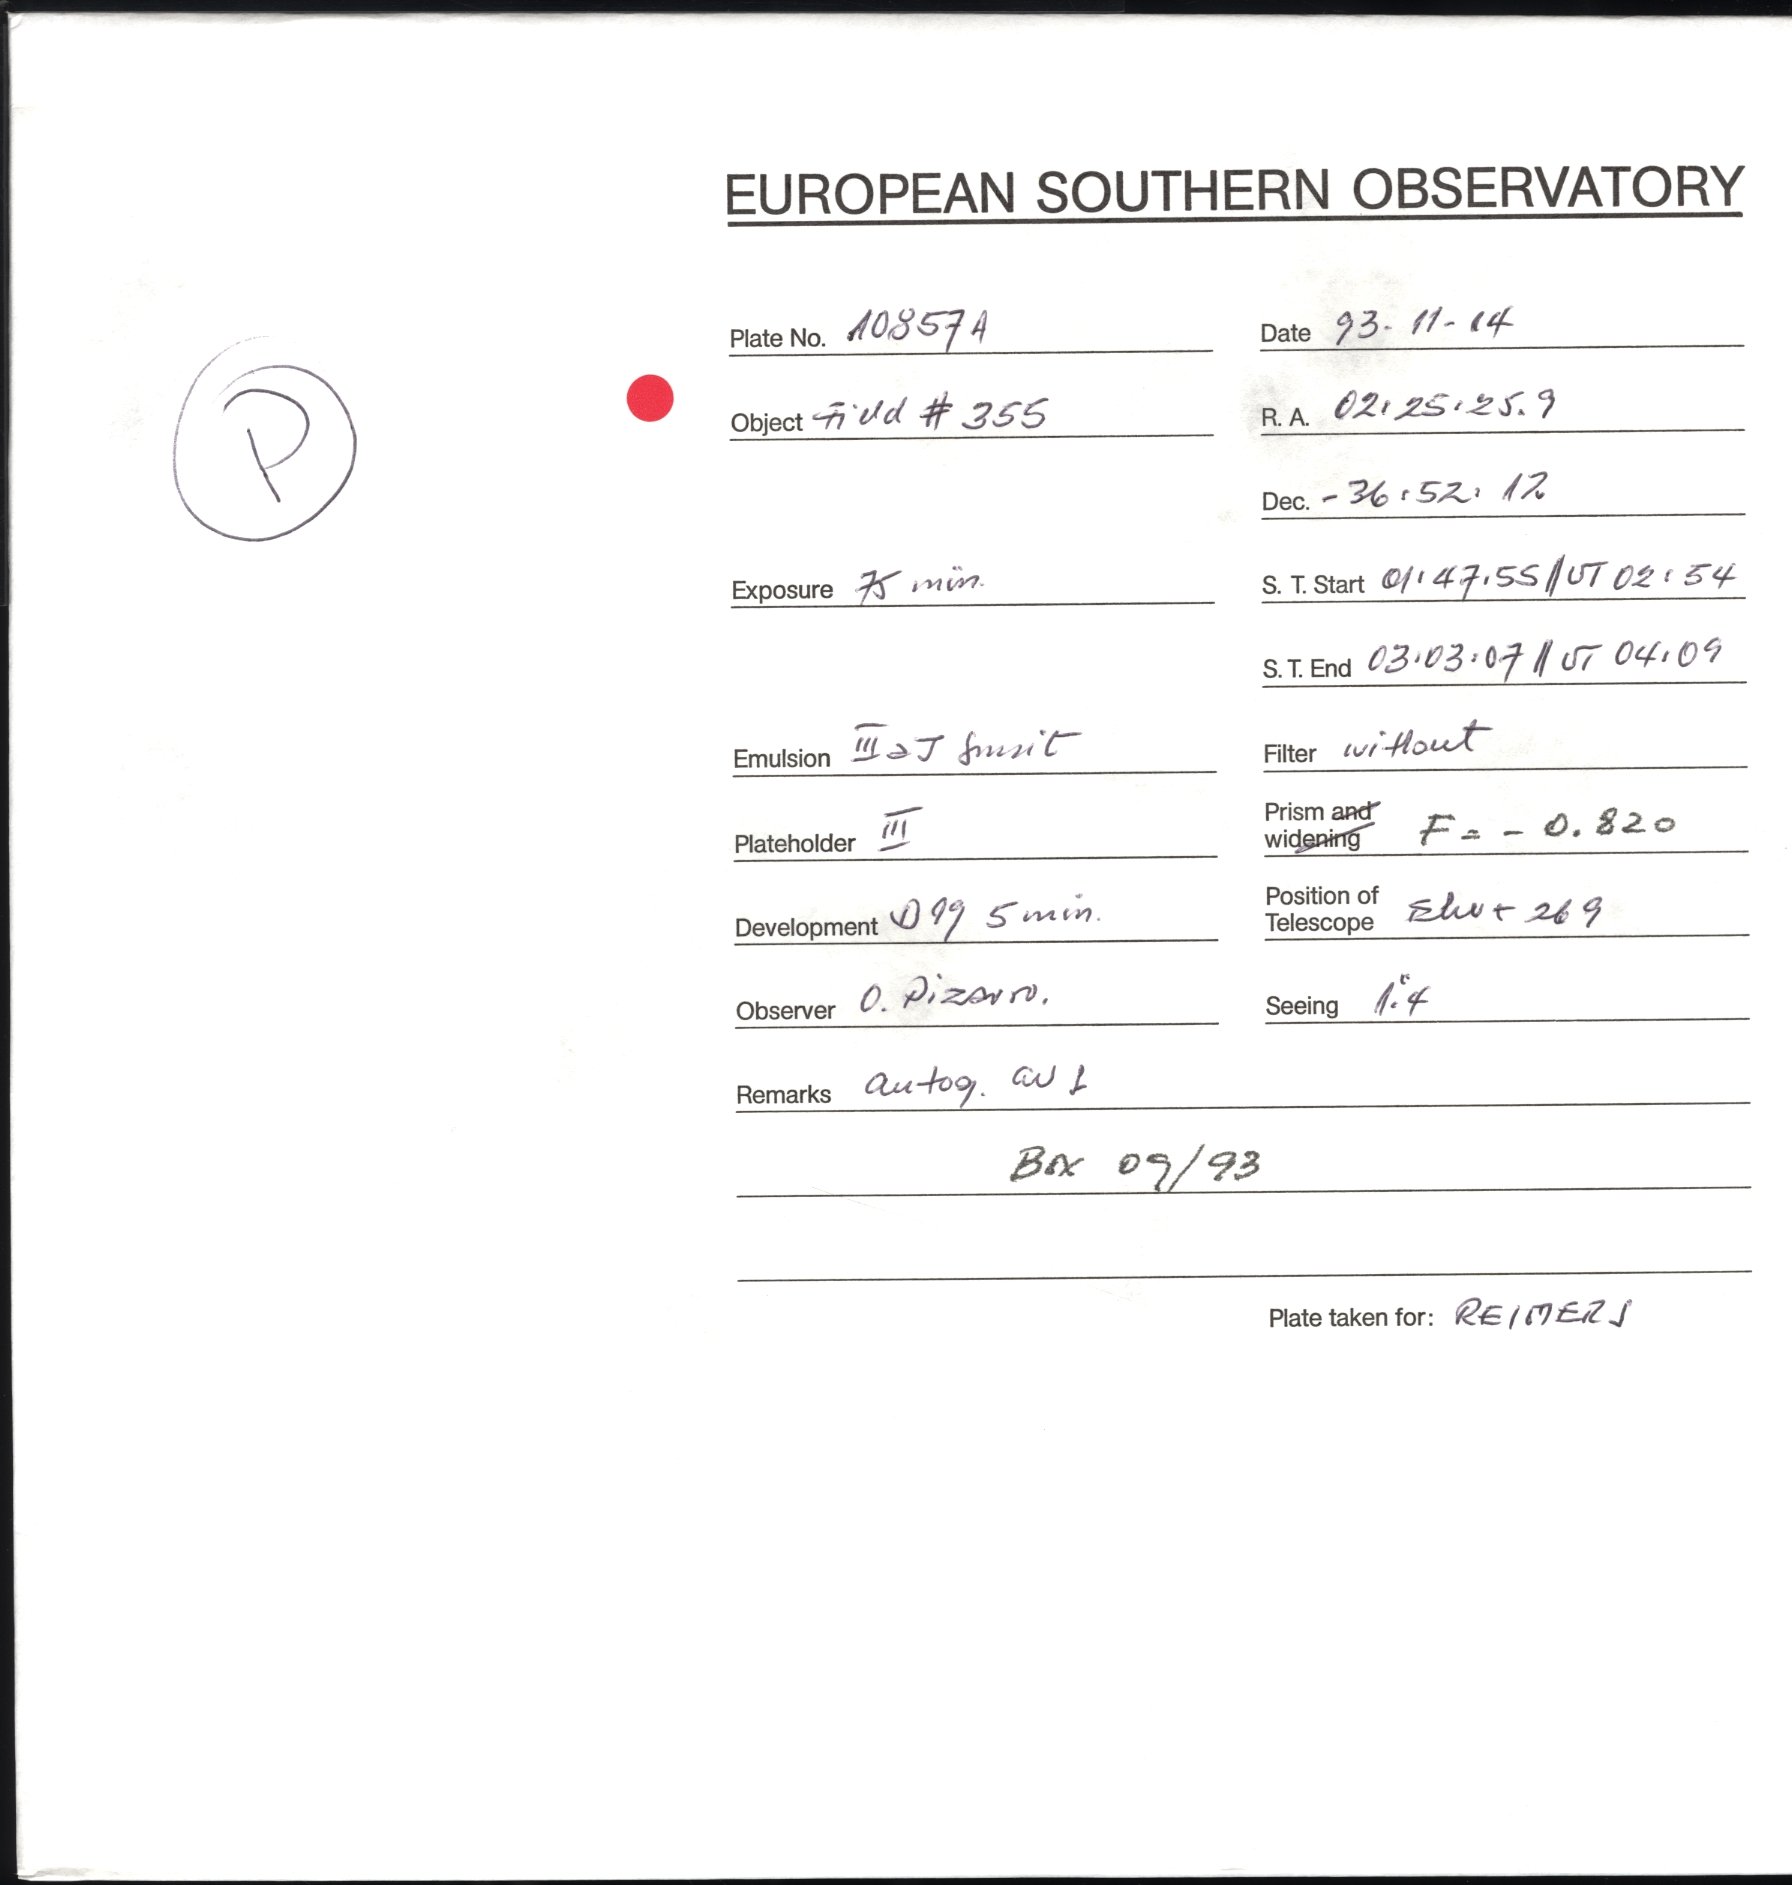 EUROPEAN SOUTHERN OBSERVATORY
Plate No. 10857A Date 93-11-14
P
Object Field # 355 R. A. 02:25:25.9
Dec. -36:52:12
Exposure 75 min. S. T. Start 01:47:55 // UT 02:54
S. T. End 03:03:07 // UT 04:09
Emulsion III aJ Filter without
Plateholder III Prism and widening F = - 0.820
Development D19 5 min. Position of Telescope + 269
Observer O. Pizarro. Seeing 1".4
Remarks autog.
Box 09/93
Plate taken for: REIMERS